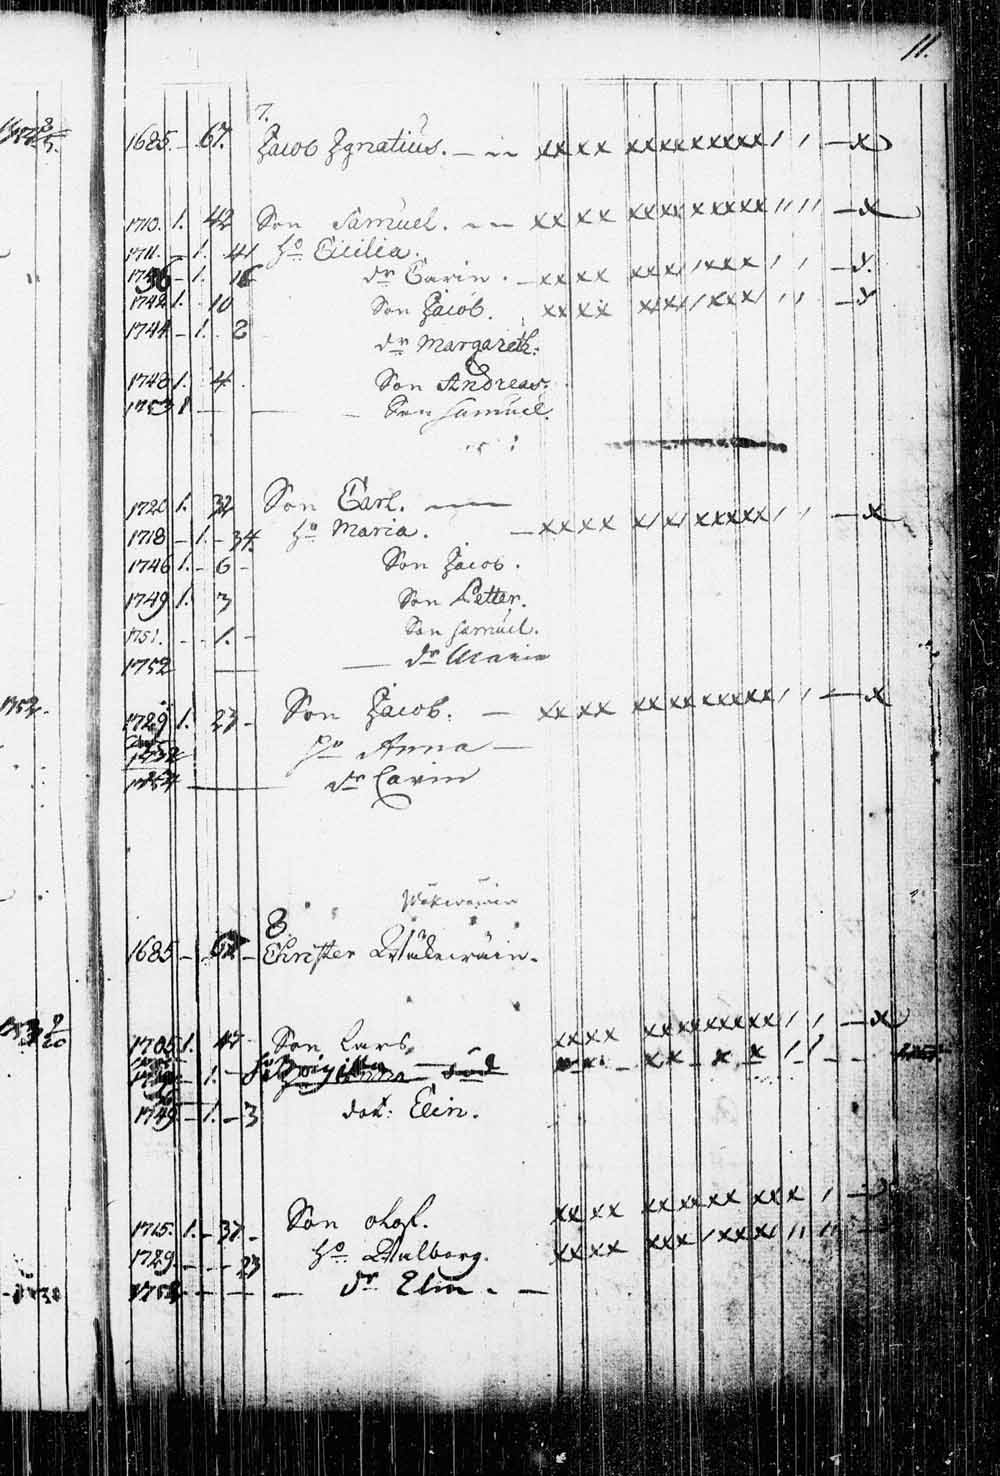 11.
7.
1685. - 67. Jacob Ignatius. - xx xx xxxxxxxxx
1710. 1. 42 Son Samuel. xx xx xxxx x xxxx - x
1711. - 1. 41 ho Cicilia.
1736 - 1. 16 dr Carin. - xx xx xxx xxx - x
1742 1. 10 Son Jacob. xx xx xxx xxx - x
1744 - 1. 8 dr Margareth:
1748 1. 4. Son Andreas.
1753 1 - Son Samuel.
1720 1. 32 Son Carl.
1718 - 1. - 34 ho Maria. - xx xx x x xxxxx - x
1746 1. - 6 - Son Jacob.
1749 1. 3 Son Petter.
1751. - 1. - Son Samuel.
1752 - - dr Maria
1752.
1729 1. 23 - Son Jacob. - xx xx xx xxxxxx - x
1732 ho Anna -
1754 - dr Carin
8.
1685 - 62 - Christer
1705 1. 47 Son Lars xx xx xxxxxxxx - x
- 1. - Brigitta
1749. - 1. - 3 dot: Elin.
1715. 1. - 37 - Son olof. xx xx xx xxx xxx
1729. - - 23 ho Walborg. xx xx xxx xxx
- - dr Elin. -